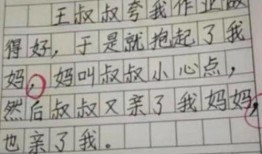 王叔叔夸我作业做
得好，于是就抱起了我
妈，妈叫叔叔小心点，
然后叔叔又亲了我妈妈，
也亲了我。